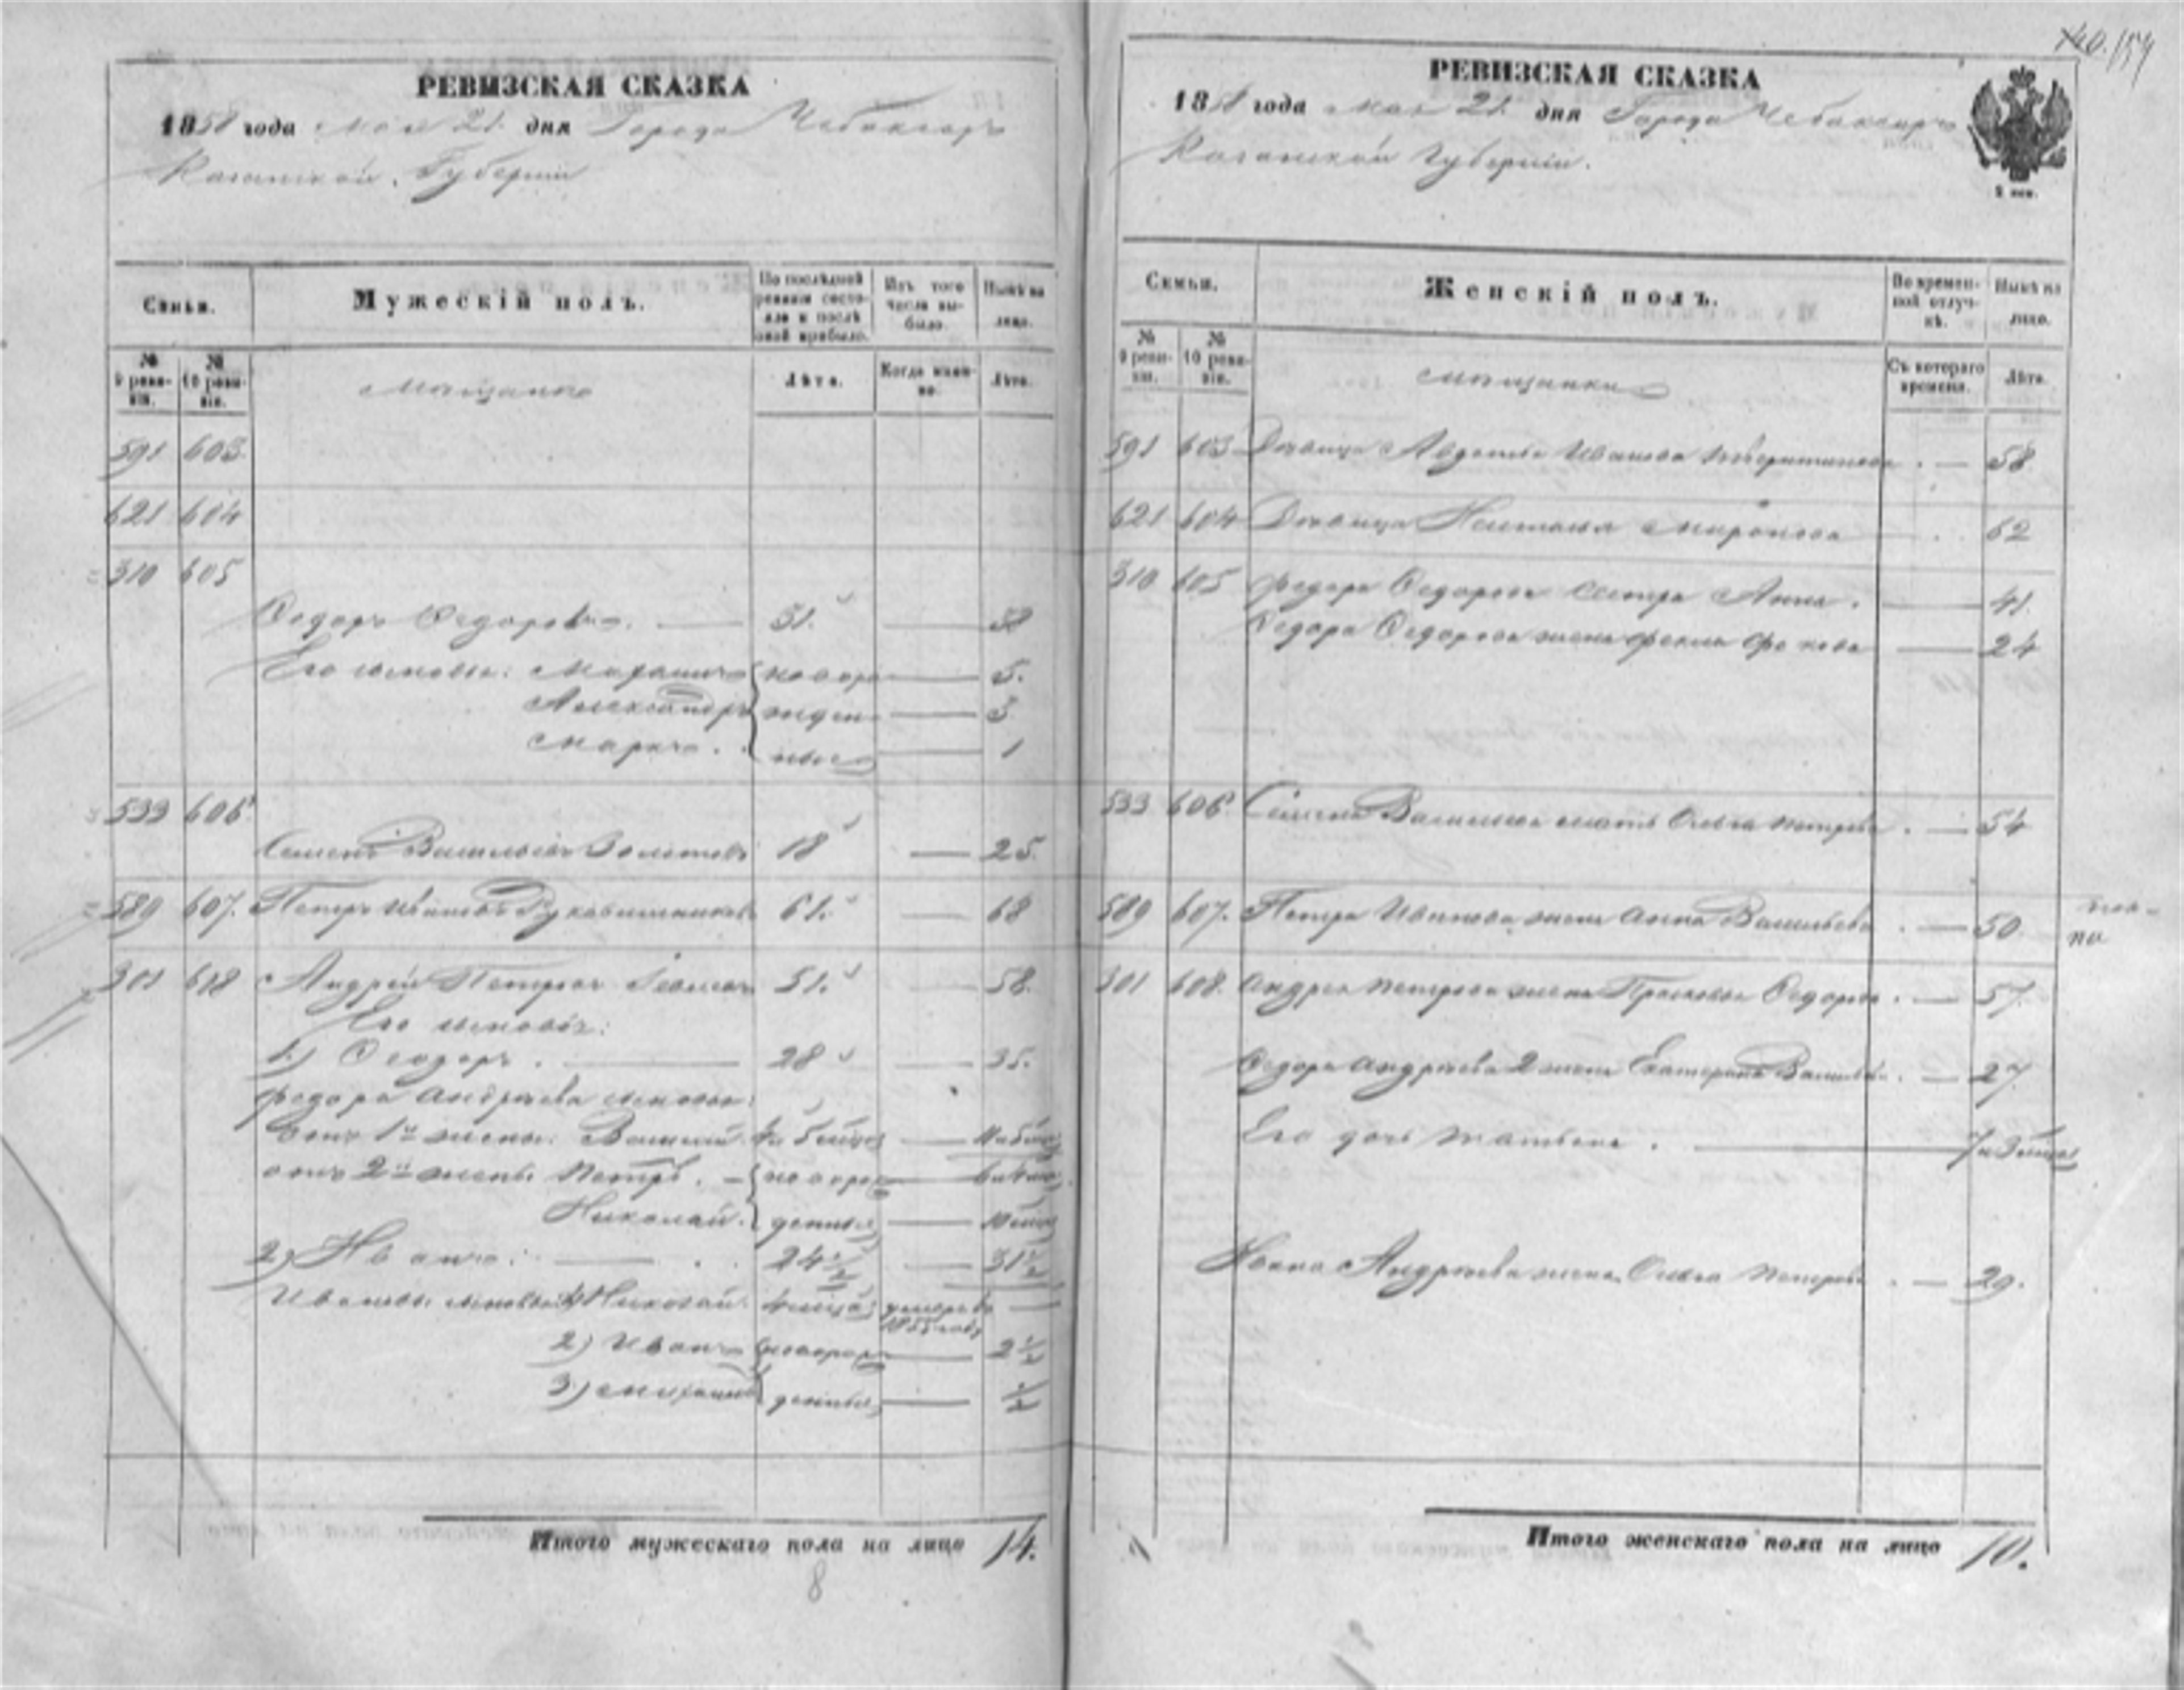 РЕВИЗСКАЯ СКАЗКА
1858 года мая 21 дня Города Чебоксаръ
Казанской Губерніи
Семьи.
Мужескій полъ.
По послѣдней ревизіи состояло и послѣ оной прибыло.
Изъ того числа выбыло.
Нынѣ на лицо.
№ 9 ревизіи.
№ 10 ревизіи.
Мѣщане
Лѣта.
Когда именно.
Лѣта.
591 603
621 604
310 605
Федоръ Федоровъ. 51.
Его сыновья: новоро 5.
Александръ жден 3
Маркъ. ные 1
533 606
Семенъ Васильевъ Золотовъ 18 25.
589 607. Петръ Ивановъ Рукавишниковъ 61. 68
301 618 Андрей Петровъ 51. 58.
Его сыновья:
1.) Федоръ. 28 35.
Федора Андреева сыновья:
отъ 1й жены: Василий
отъ 2й жены Петръ. новорож
Николай. денные
2) Иванъ. 24 ½ 31 ½
Ивановы сыновья: 1) Николай умеръ въ
2) Иванъ новорож 2 ½
3) Михаилъ денные ½
Итого мужескаго пола на лицо 14.
8
154
РЕВИЗСКАЯ СКАЗКА
1858 года мая 21 дня Города Чебоксаръ
Казанской Губерніи.
Семьи.
Женскій полъ.
Во временной отлучкѣ.
Нынѣ на лицо.
№ 9 ревизіи.
№ 10 ревизіи.
Мѣщанки
Съ котораго времени.
Лѣта.
591 603 Дѣвица Авдотья Иванова 58
621 604 Дѣвица Миронова 62
310 605 Федора Федорова сестра Анна. 41.
Федора Федорова жена Фекла 24
533 606 Семена Васильева мать Ольга Петрова 54
589 607. Петра Иванова жена Анна Васильева 50
301 608. Андрея Петрова жена Прасковья Федорова 57.
Федора Андреева 2 жена Екатерина Васильева 27
Его дочь Татьяна.
Ивана Андреева жена Ольга Петрова 29.
Итого женскаго пола на лицо 10.